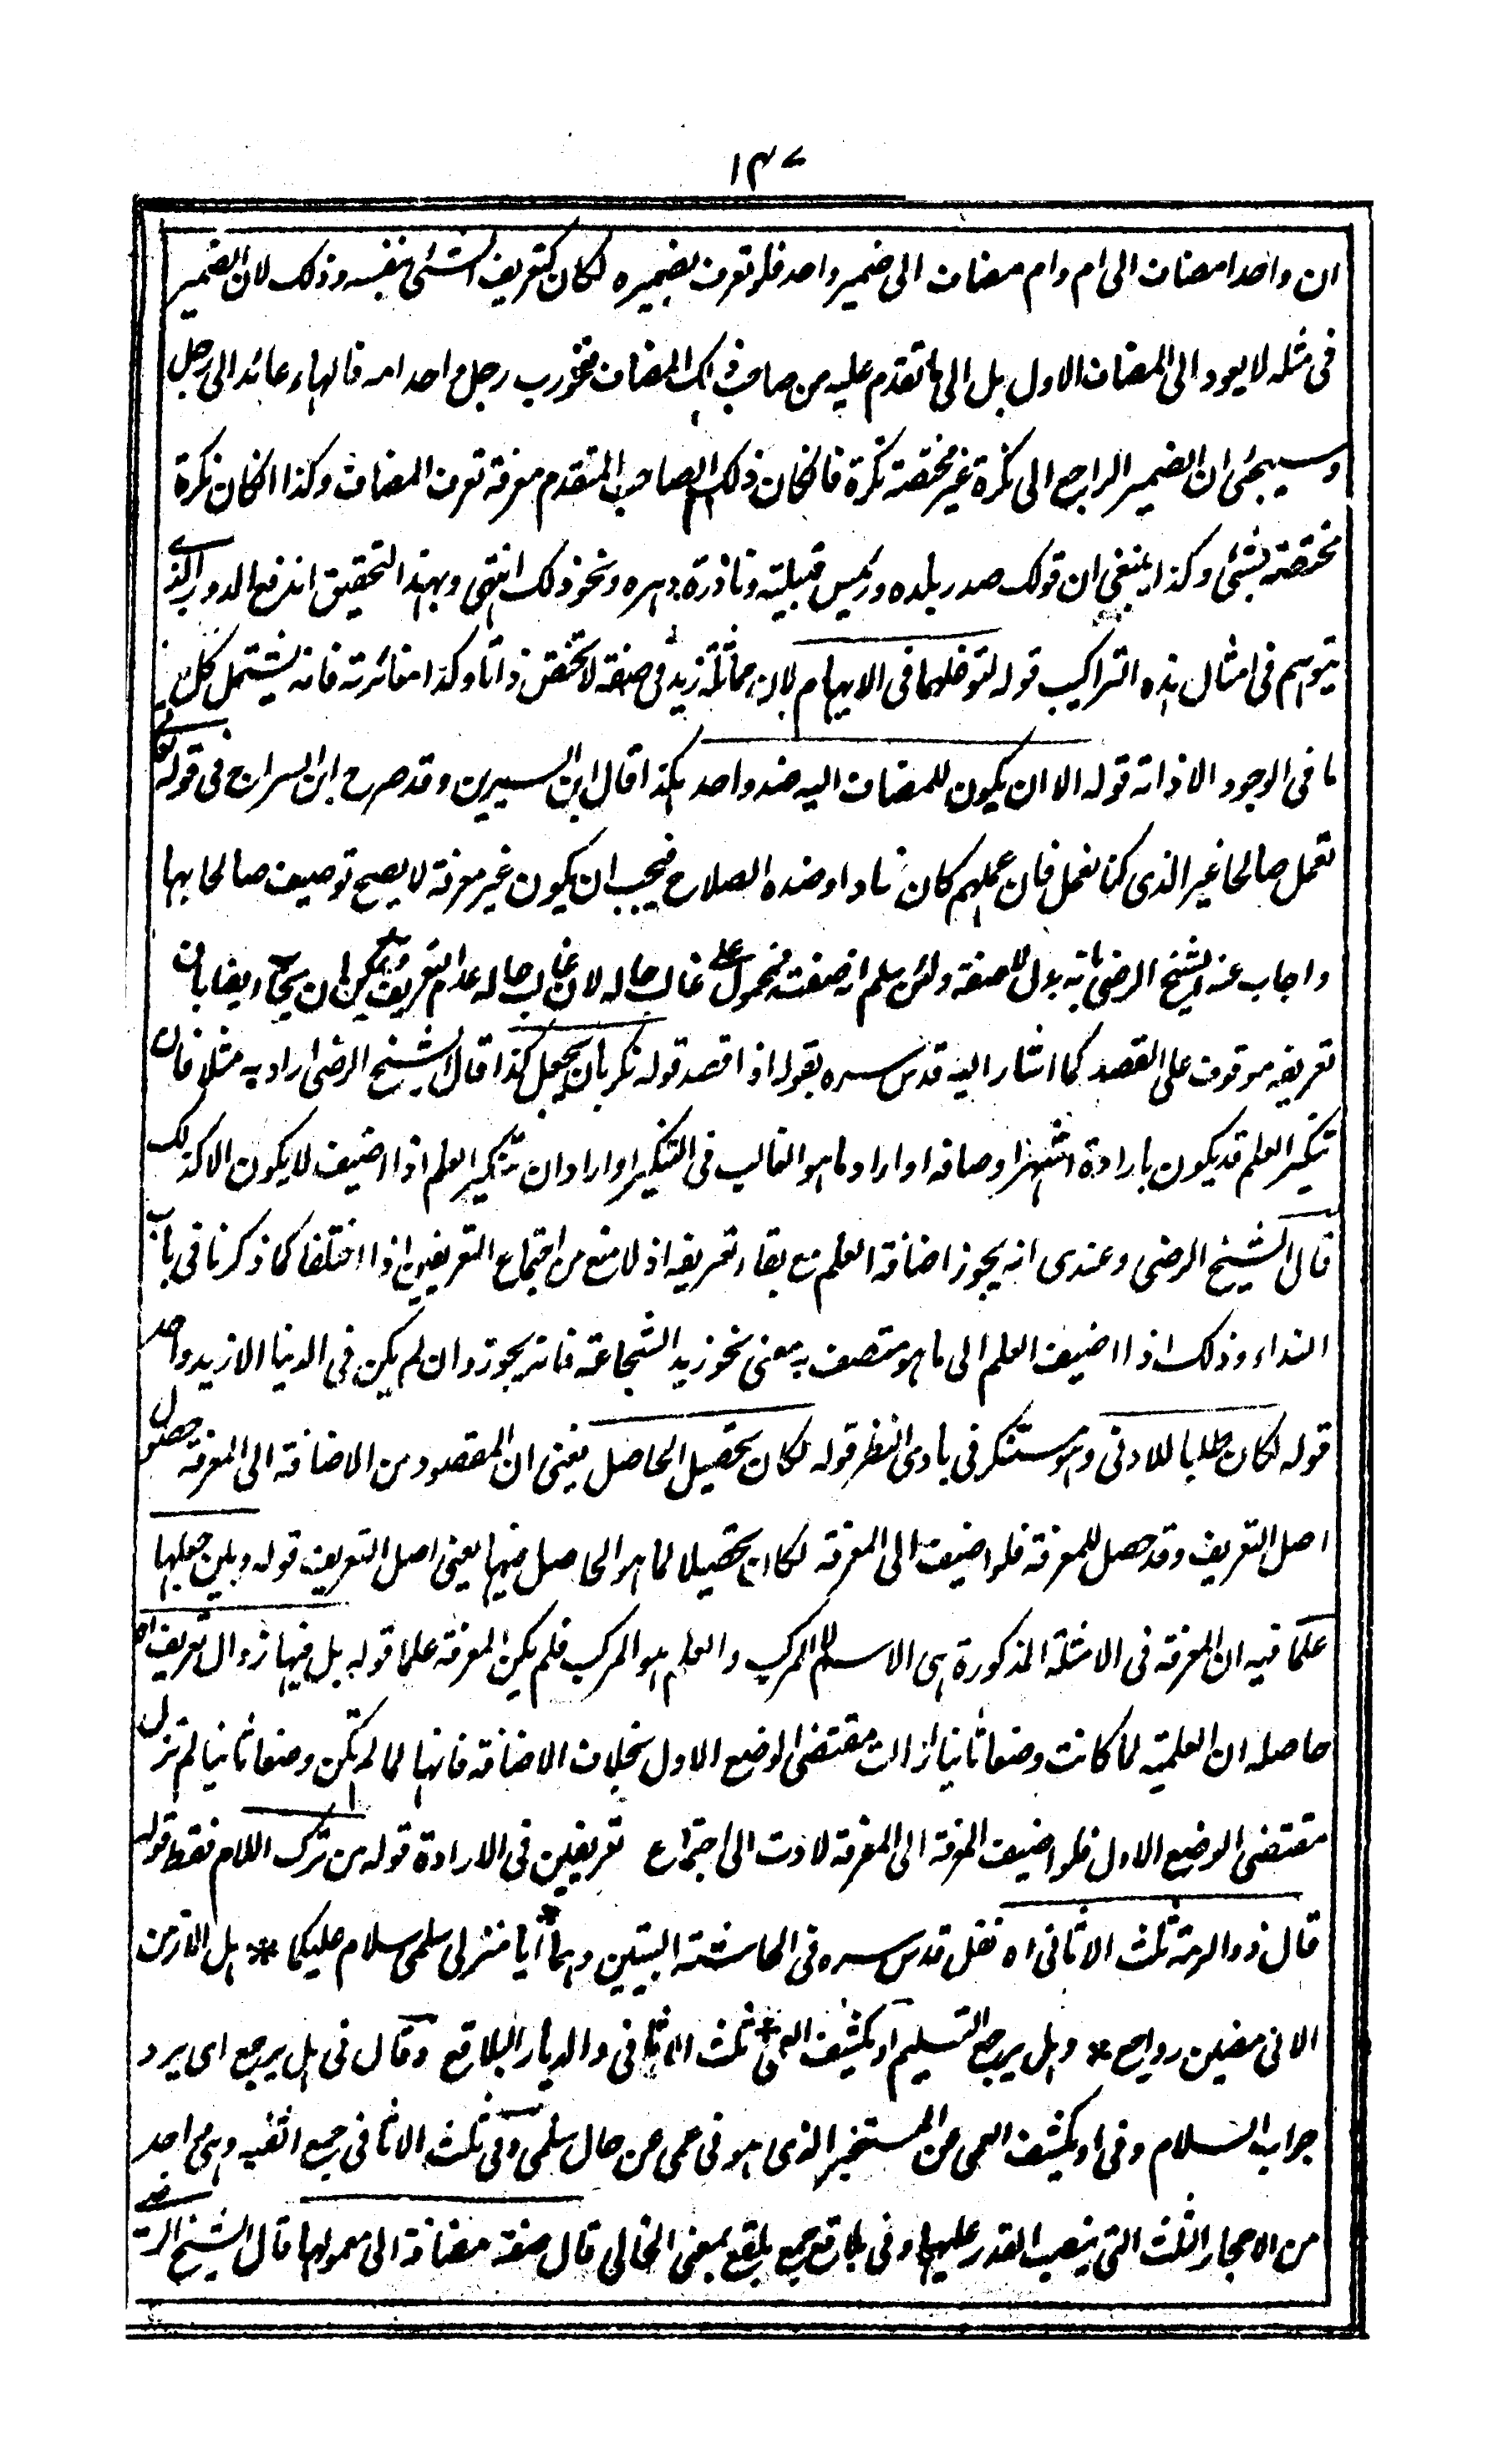 ١٤٧
ان واحدا مضاف الى ام وام مضاف الى ضمير واحد فلو تعرف بضميره لكان كتعريف الشئ بنفسه وذلك لان الضمير
فى مثله لا يعود الى المضاف الاول بل الى ما تقدم عليه من صاحب ذلك المضاف نحو رب رجل واحد امه فالهاء عائد الى رجل
وسيجئ ان الضمير الراجع الى نكرة غير مختصة نكرة فانكان ذلك الصاحب المتقدم معرفة تعرف المضاف وكذا انكان نكرة
مختصة بشئ وكذا ينبغى ان قولك صدر بلده ورئيس قبيلته ونادرة دهره ونحو ذلك انتهى وبهذا التحقيق اندفع الدور الذى
يتوهم فى امثال هذه التراكيب قوله لتوغلهما فى الابهام لان مماثلة زيد فى صفة لا تخص ذاتا وكذا مغائرته فانه يشتمل كل
ما فى الوجود الا ذاته قوله الا ان يكون للمضاف اليه ضد واحد هكذا قال ابن السيرين وقد صرح ابن السراج فى قوله تعالى
نعمل صالحا غير الذى كنا نعمل فان عملهم كان فسادا وضده الصلاح فيجب ان يكون غير معرفة لا يصح توصيف صالحا بها
واجاب عنه الشيخ الرضى بانه بدل لا صفة ولئن سلم انه صفة فمحمول على غالب حاله لان غالب حاله عدم التعريف ويمكن ان يجاب ايضا بان
تعريفه موقوف على القصد كما اشار اليه قدس سره بقوله اذا قصد قوله نكر بان يجعل كذا قال الشيخ الرضى اراد به مثلا فان
تنكير العلم قد يكون بارادة اشهر اوصافه او اراد ما هو الغالب فى التنكير او اراد ان تنكير العلم اذا اضيف لا يكون الا كذلك
قال الشيخ الرضى وعندى انه يجوز اضافة العلم مع بقاء تعريفه اذ لا منع من اجتماع التعريفين اذا اختلفا كما ذكرنا فى باب
النداء وذلك اذا اضيف العلم الى ما هو متصف به معنى نحو زيد الشجاعة فانه يجوز وان لم يكن فى الدنيا الا زيد واحد
قوله لكان طلبا للادنى وهو مستنكر فى بادى النظر قوله لكان تحصيل الحاصل يعنى ان المقصود من الاضافة الى المعرفة حصول
اصل التعريف وقد حصل للمعرفة فلو اضيف الى المعرفة لكان تحصيلا لما هو الحاصل فيها يعنى اصل التعريف قوله وبين جعلها
علما فيه ان المعرفة فى الامثلة المذكورة هى الاسم لا المركب والعلم هو المركب فلم يكن المعرفة علما قوله بل فيها زوال تعريف اه
حاصله ان العلمية لما كانت وضعا ثانيا زالت مقتضى الوضع الاول بخلاف الاضافة فانها لما لم تكن وضعا ثانيا لم تزل
مقتضى الوضع الاول فلو اضيف المعرفة الى المعرفة لادت الى اجتماع تعريفين فى الارادة قوله من ترك اللام فقط قوله
قال ذو الرمة ثلث الاثافى اه نقل قدس سره فى الحاشية البيتين وهما أيا منزلى سلمى سلام عليكما * هل الازمن
الائى مضين رواجع * وهل يرجع التسليم او يكشف العمى * ثلث الاثافى والديار البلاقع وقال فى هل يرجع اى يرد
جواب السلام وفى او يكشف العمى عن المستخبر الذى هو فى عمى عن حال سلمى وفى ثلث الاثافى جمع اثفيه وهى احد
من الاحجار الثلث التى ينصب القدر عليها وفى بلاقع جمع بلقع بمعنى الخالى قال صفة مضافة الى معمولها قال الشيخ الرضى